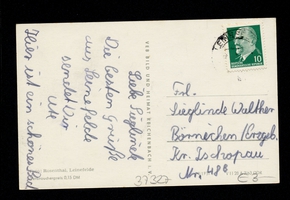 Liebe Sieglinde
Die besten Grüße
aus
sendet Dir
Ute
Hier ist ein schönes Bad
BILD UND HEIMAT REICHENBACH i. V.
10
Frl.
Sieglinde Walther
Börnichen/Erzgeb.
Kr. Zschopau
Nr. 48
37327